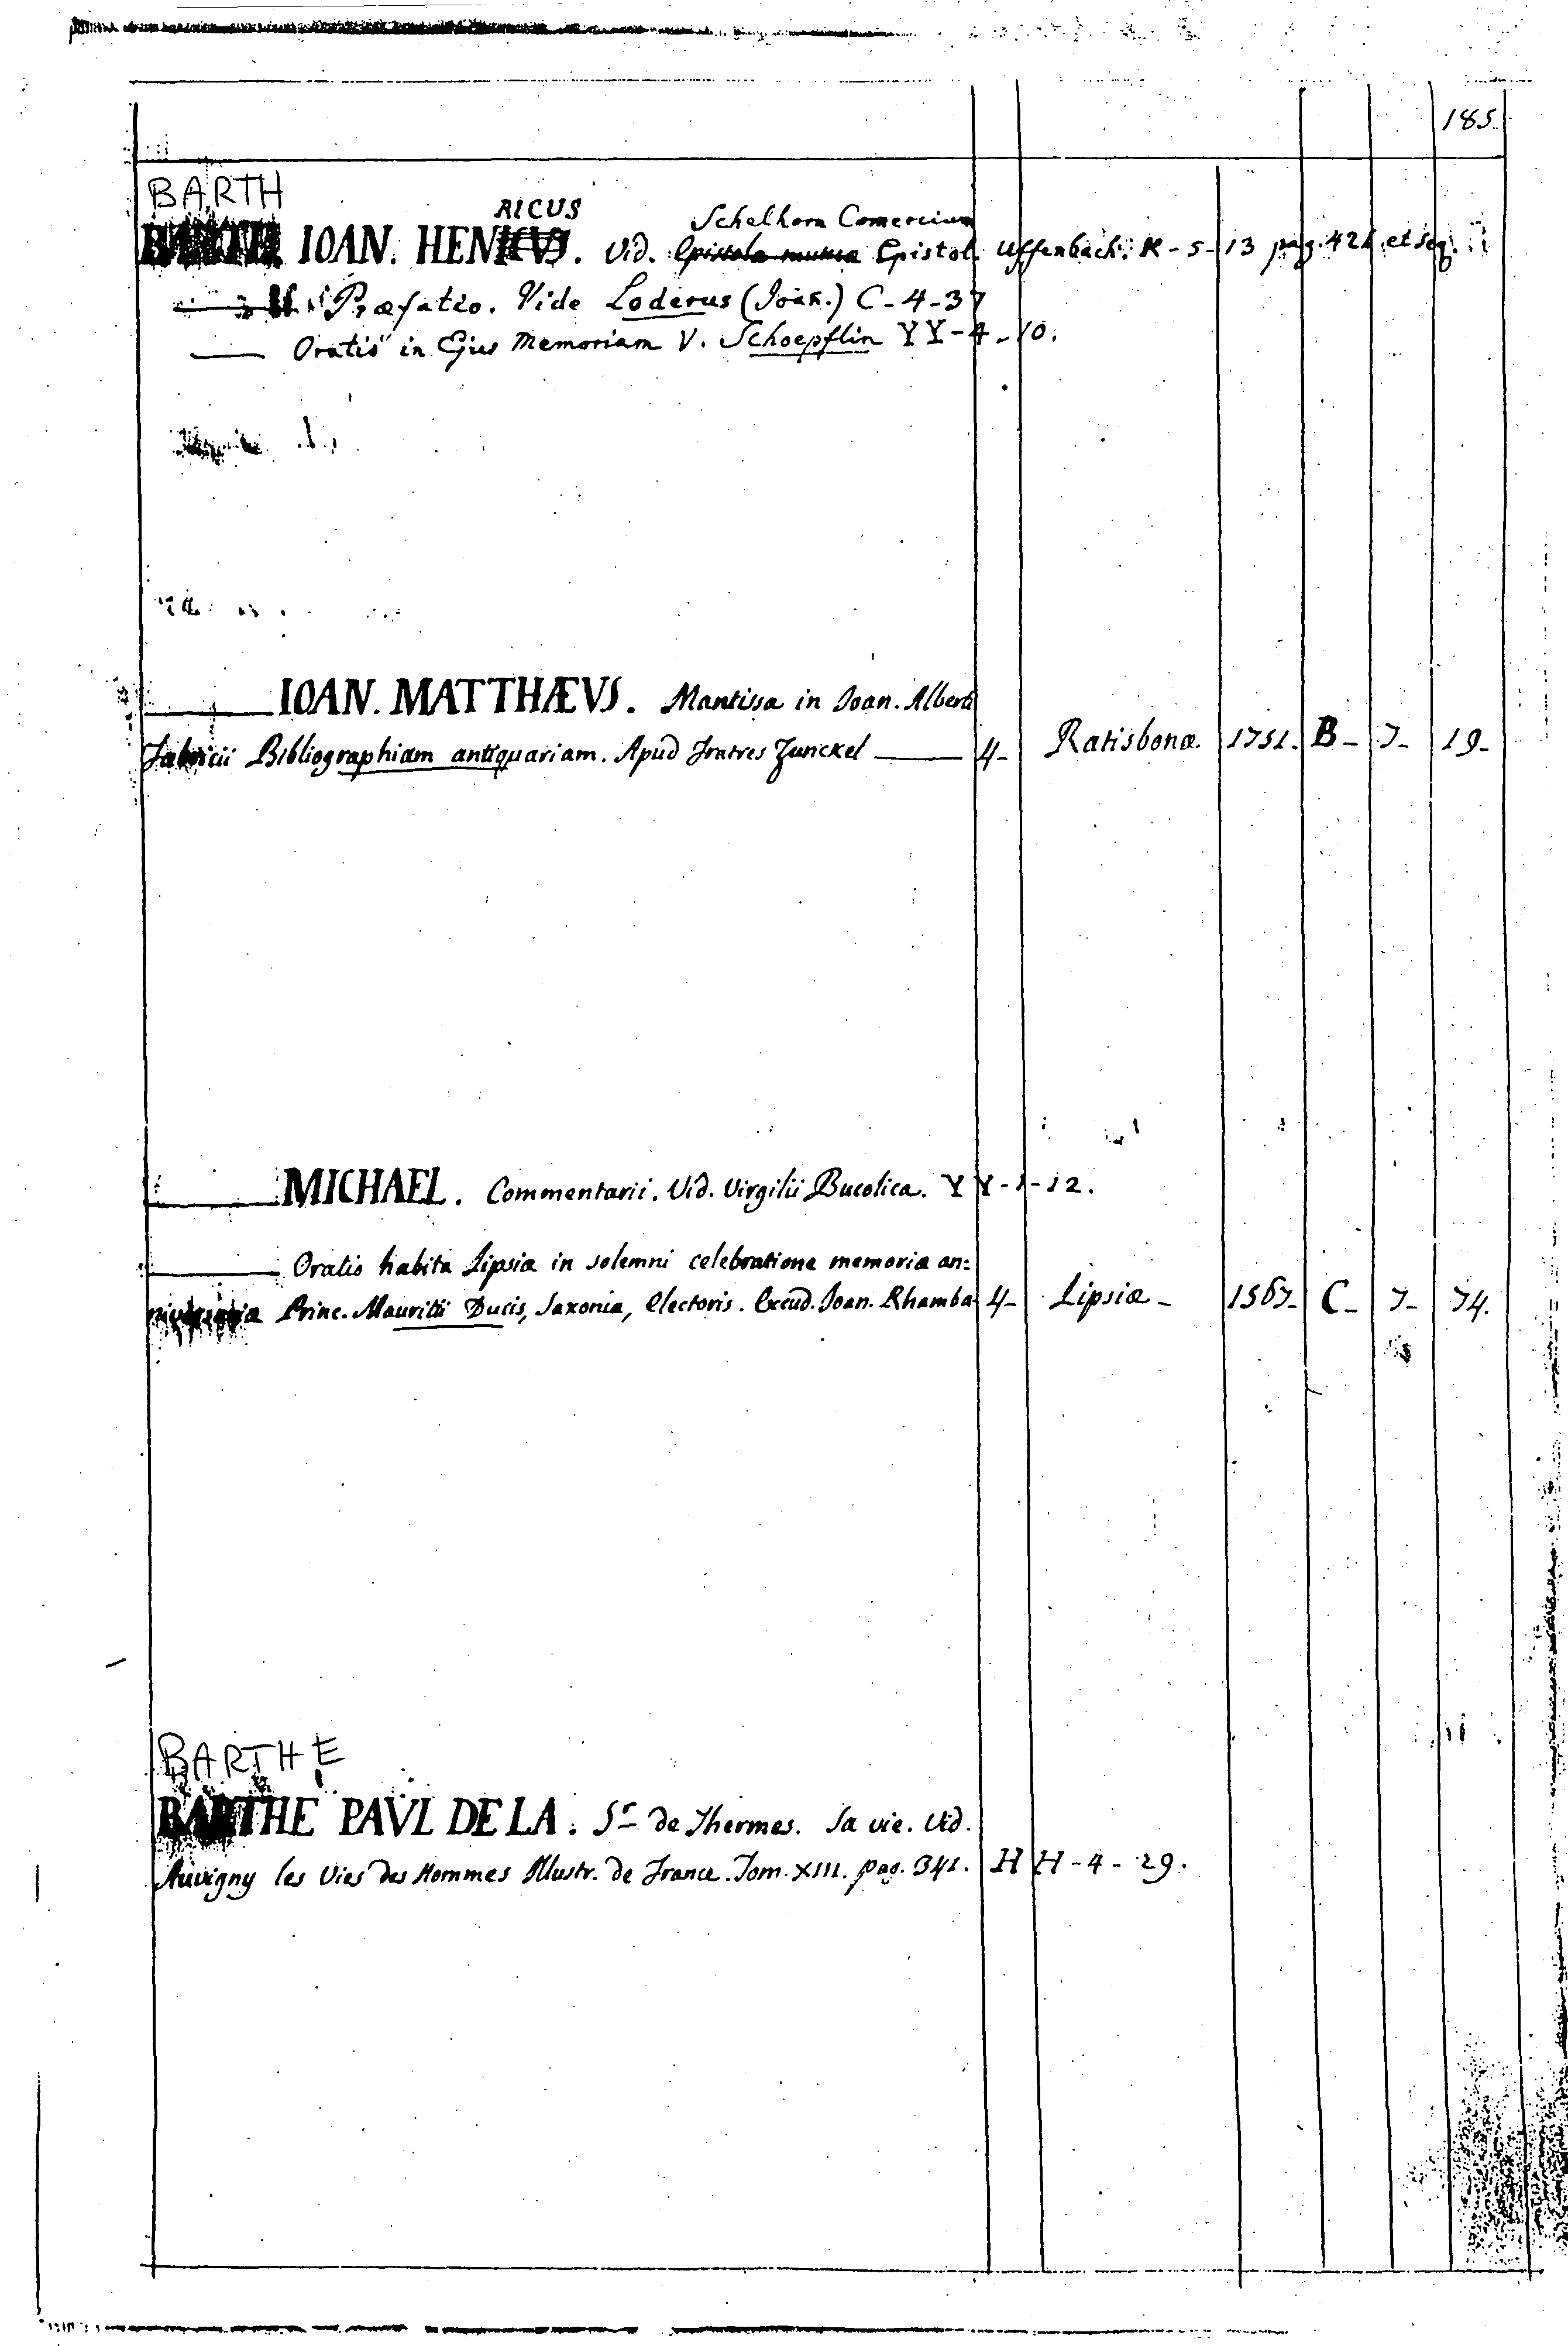 185.
BARTH
RICUS
Schelhorn Comercium
BARTH IOAN. HENICVS. Vid. Epistola mutua Epistol. Uffenbach. K-5-13 pag. 421 et seq.
Præfatio. Vide Loderus (Joan.) C-4-37
Oratio in Ejus Memoriam V. Schoepflin YY-4-10.
IOAN. MATTHÆVS. Mantissa in Ioan. Alberti
Fabricii Bibliographiam antiquariam. Apud Fratres Zunckel 4- Ratisbonæ. 1751. B- 7- 19-
MICHAEL. Commentarii. Vid. Virgilii Bucolica. YY-1-12.
Oratio habita Lipsiæ in solemni celebratione memoriæ an=
niversariæ Princ. Mauritii Ducis, Saxoniæ, Electoris. Excud. Joan. Rhamba 4- Lipsiæ- 1567- C- 7- 74.
BARTHE
BARTHE PAVL DE LA. Sr de Thermes. Sa vie. Vid.
Auvigny les Vies des Hommes Illustr. de France. Tom. XIII. pag. 341. HH-4-29.